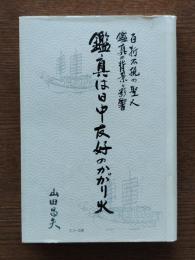 百折不撓の聖人
鑑真の背景と影響
鑑真は日中友好のかがり火
山田昌夫